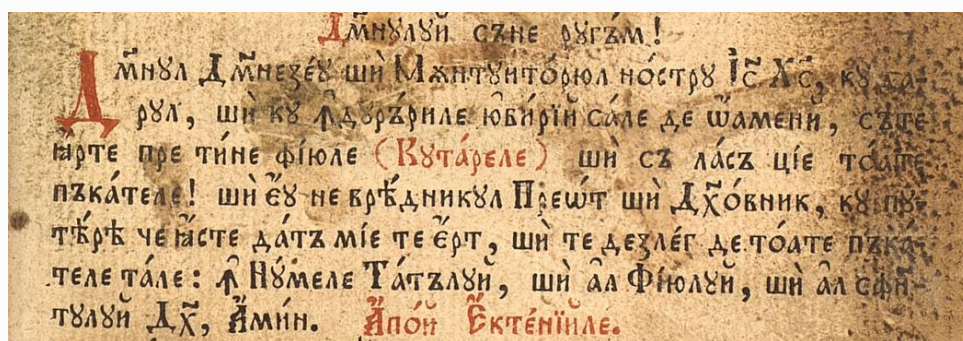 Дм҃нулуй съне ругъ́м!
Дм҃нꙋл Дм҃незе́ꙋ шѝ Мѫнтꙋито́рюл но́стрꙋ І҆с҃ Х҃с, кꙋ да́-
рꙋл, шѝ кꙋ ꙟ҆дꙋръ́риле юби́рїй са́ле де ѡ҆́амени, съ́те
ꙗ҆́рте пре ти́не фі́юле (Кꙋта́реле) шѝ съ ла́съ цїе то́ате
пъка́теле! шѝ є҆́ꙋ не врѣ́дникꙋл Прео́т шѝ Дх҃о́вник, кꙋ пꙋ-
тѣ́рѣ че ꙗ҆́сте да́тъ мі́е те є҆́рт, шѝ те дезле́г де то́ате пъка́-
теле та́ле: ꙟ҆ Нꙋ́меле Та́тълꙋй, шѝ а҆л Фі́юлꙋй, шѝ а҆л сфи́н-
тꙋлꙋй Дх҃, А҆ми́н. А҆по́й Є҆кте́нїйле.